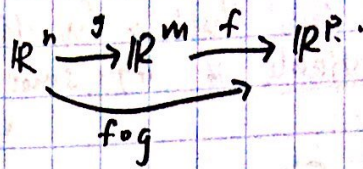 ℝⁿ —g→ ℝᵐ —f→ ℝᵖ.
f∘g